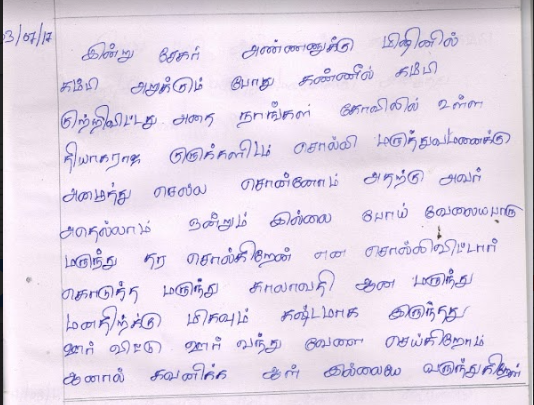 3/07/17
இன்று சேகர் அண்ணனுக்கு மிஷினில்
கம்பி அறுக்கும் போது கண்ணீல் கம்பி
குற்றிவிட்டது அதை நாங்கள் கோவிலில் உள்ள
தியாகராஜ குருக்களிடம் சொல்லி மருத்துவமனைக்கு
அழைத்து செல்ல சொன்னோம் அதற்கு அவர்
அதெல்லாம் ஒன்றும் இல்லை போய் வேலையபாரு
மருந்து தர சொல்கிறேன் என சொல்லிவிட்டார்
கொடுத்த மருந்து காலாவதி ஆன மருந்து
மனதிற்க்கு மிகவும் கஷ்டமாக இருந்தது
ஊர் விட்டு ஊர் வந்து வேலை செய்கிறோம்
ஆனால் கவனிக்க ஆள் இல்லையே வருந்துகிறேன்